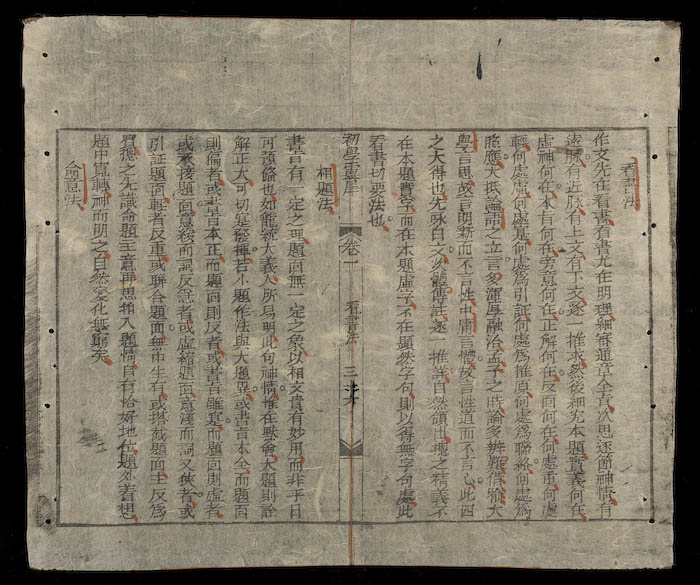 看書法
作文先在看書看書尤在明理細審通章全旨次思逐節神情有
遠脉有近脉有上文有下文逐一推求然後細究本題實義何在
虛神何在本旨何在旁意何在正解何在反面何在何處重何處
輕何處虛何處是何處為引証何處為推原何處為聯絡何處為
照應大抵論語之立言多渾厚融洽孟子之時論多辨難借喻大
學言思故言明新而不言性中庸言體故言性道而不言心此四
之大得也先咏白文次傳註逐一推詳自然領出之精義不
在本題實字而在本題虛字不在顯然字句則以得無字句處此
看書切要法也
初學 卷一 看書法 三
相題法
書言有一定之理題面無一定之象以相文貴有妙用而非乎日
可預偹也如冠大義人所易明此句神情惟在默會大題則詮
解正大可切實發揮若小題作法與大題異或書言本全而題面
則偏者或書言本正而題面則反者或書言雖實而題面則虛者
或承接題面意緩而詞反急者或虛縮題面意淺而詞又狹者或
引証題面輕者反重或聯合題面無中生有或搭截題面主反為
賓總之先識命題主意再思拍入題情自有恰好地位題外着想
題中覓轉神而明之自然變化無窮矣
命意法